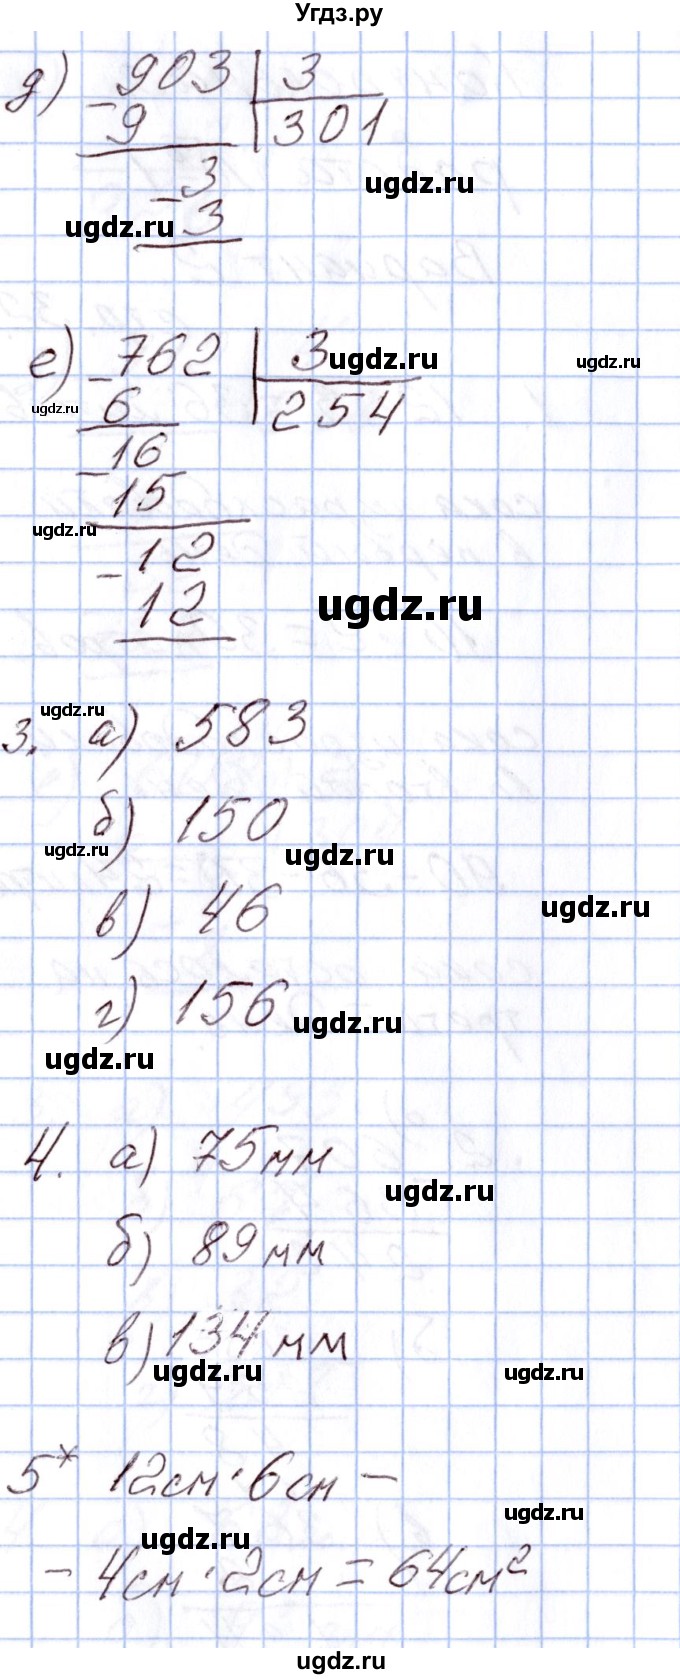 Угдз.ру
д) 903 | 3
- 9 301
ugdz.ru
- 3
ugdz.ru 3
е) - 762 | 3 ugdz.ru ugdz.ru
ugdz.ru 6 254
- 16
15
ugdz.ru
- 12
12 ugdz.ru
ugdz.ru
3. а) 583
б) 150
ugdz.ru ugdz.ru
в) 46 ugdz.ru
г) 156 ugdz.ru
ugdz.ru
4. а) 75 мм
ugdz.ru
б) 89 мм
в) 134 мм
ugdz.ru ugdz.ru
5* 12см · 6см -
ugdz.ru
ugdz.ru
- 4см · 2см = 64см²
ugdz.ru